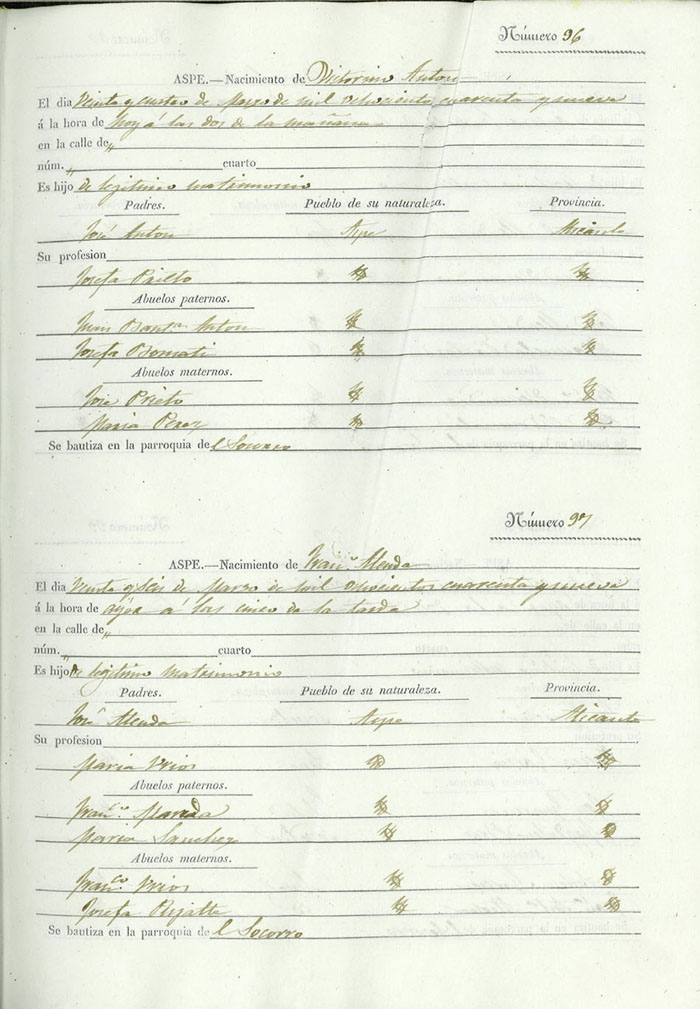 Número 96
ASPE.—Nacimiento de Victorino Anton
El dia Veinte y cuatro de Marzo de mil ochocientos cuarenta y nueve
á la hora de hoy á las dos de la mañana
en la calle de „
núm. „ cuarto
Es hijo de legitimo matrimonio
Padres. Pueblo de su naturaleza. Provincia.
José Anton Aspe Alicante
Su profesion
Josefa Prieto
Abuelos paternos.
Juan Bauta. Anton
Josefa Bomati
Abuelos maternos.
José Prieto
Maria Perez
Se bautiza en la parroquia del Socorro
Número 97
ASPE.—Nacimiento de Franco.
El dia Veinte y seis de Marzo de mil ochocientos cuarenta y nueve
á la hora de ayer á las cinco de la tarde
en la calle de „
núm. „ cuarto
Es hijo de legitimo matrimonio
Padres. Pueblo de su naturaleza. Provincia.
José Aspe Alicante
Su profesion
Maria Urios
Abuelos paternos.
Franco.
Maria Sanchez
Abuelos maternos.
Franco. Urios
Josefa
Se bautiza en la parroquia del Socorro